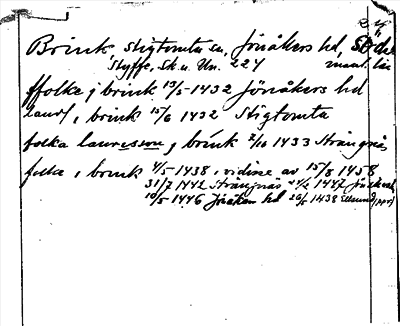 24
Brink Stigtomta sn, Jönåkers hd, Söder
Styffe, Sk. u. Un. 224 manl. län
ffolke j brink 13/5-1432 Jönåkers hd
laur/, brink 15/6 1432 Stigtomta
folka lauresson j brink 2/10 1433 Strängnäs
folke i brink 4/5 1438 i vidisse av 15/8 1458
31/7 1442 Strängnäs 1447
10/5 1446 hd 20/5 1438